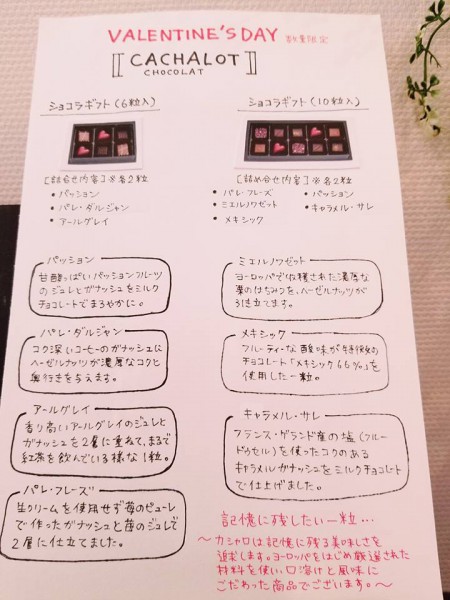 VALENTINE'S DAY 数量限定
CACHALOT
CHOCOLAT
ショコラギフト(6粒入)
[詰合せ内容]※各2粒
・パッション
・パレ・ダルジャン
・アールグレイ
ショコラギフト(10粒入)
[詰め合せ内容]※各2粒
・パレ・フレーズ
・パッション
・ミエルノワゼット
・キャラメル・サレ
・メキシック
パッション
甘酸っぱいパッションフルーツ
のジュレとガナッシュをミルク
チョコレートでまろやかに。
パレ・ダルジャン
コク深いコーヒーのガナッシュに
ヘーゼルナッツが濃厚なコクと
奥行きを与えます。
アールグレイ
香り高いアールグレイのジュレと
ガナッシュを2層に重ねて、まるで
紅茶を飲んでいる様な1粒。
パレ・フレーズ
生クリームを使用せず苺のピューレ
で作ったガナッシュと苺のジュレで
2層に仕立てました。
ミエルノワゼット
ヨーロッパで収穫された濃厚な
栗のはちみつを、ヘーゼルナッツが
引き立てます。
メキシック
フルーティーな酸味が特徴の
チョコレート「メキシック66%」を
使用した一粒。
キャラメル・サレ
フランス・ゲランド産の塩(フルー
ドゥセル)を使ったコクのある
キャラメルガナッシュをミルクチョコレート
で仕上げました。
記憶に残したい一粒...
〜カシャロは記憶に残る美味しさを
追求します。ヨーロッパをはじめ厳選された
材料を使い、口溶けと風味に
こだわった商品でございます。〜